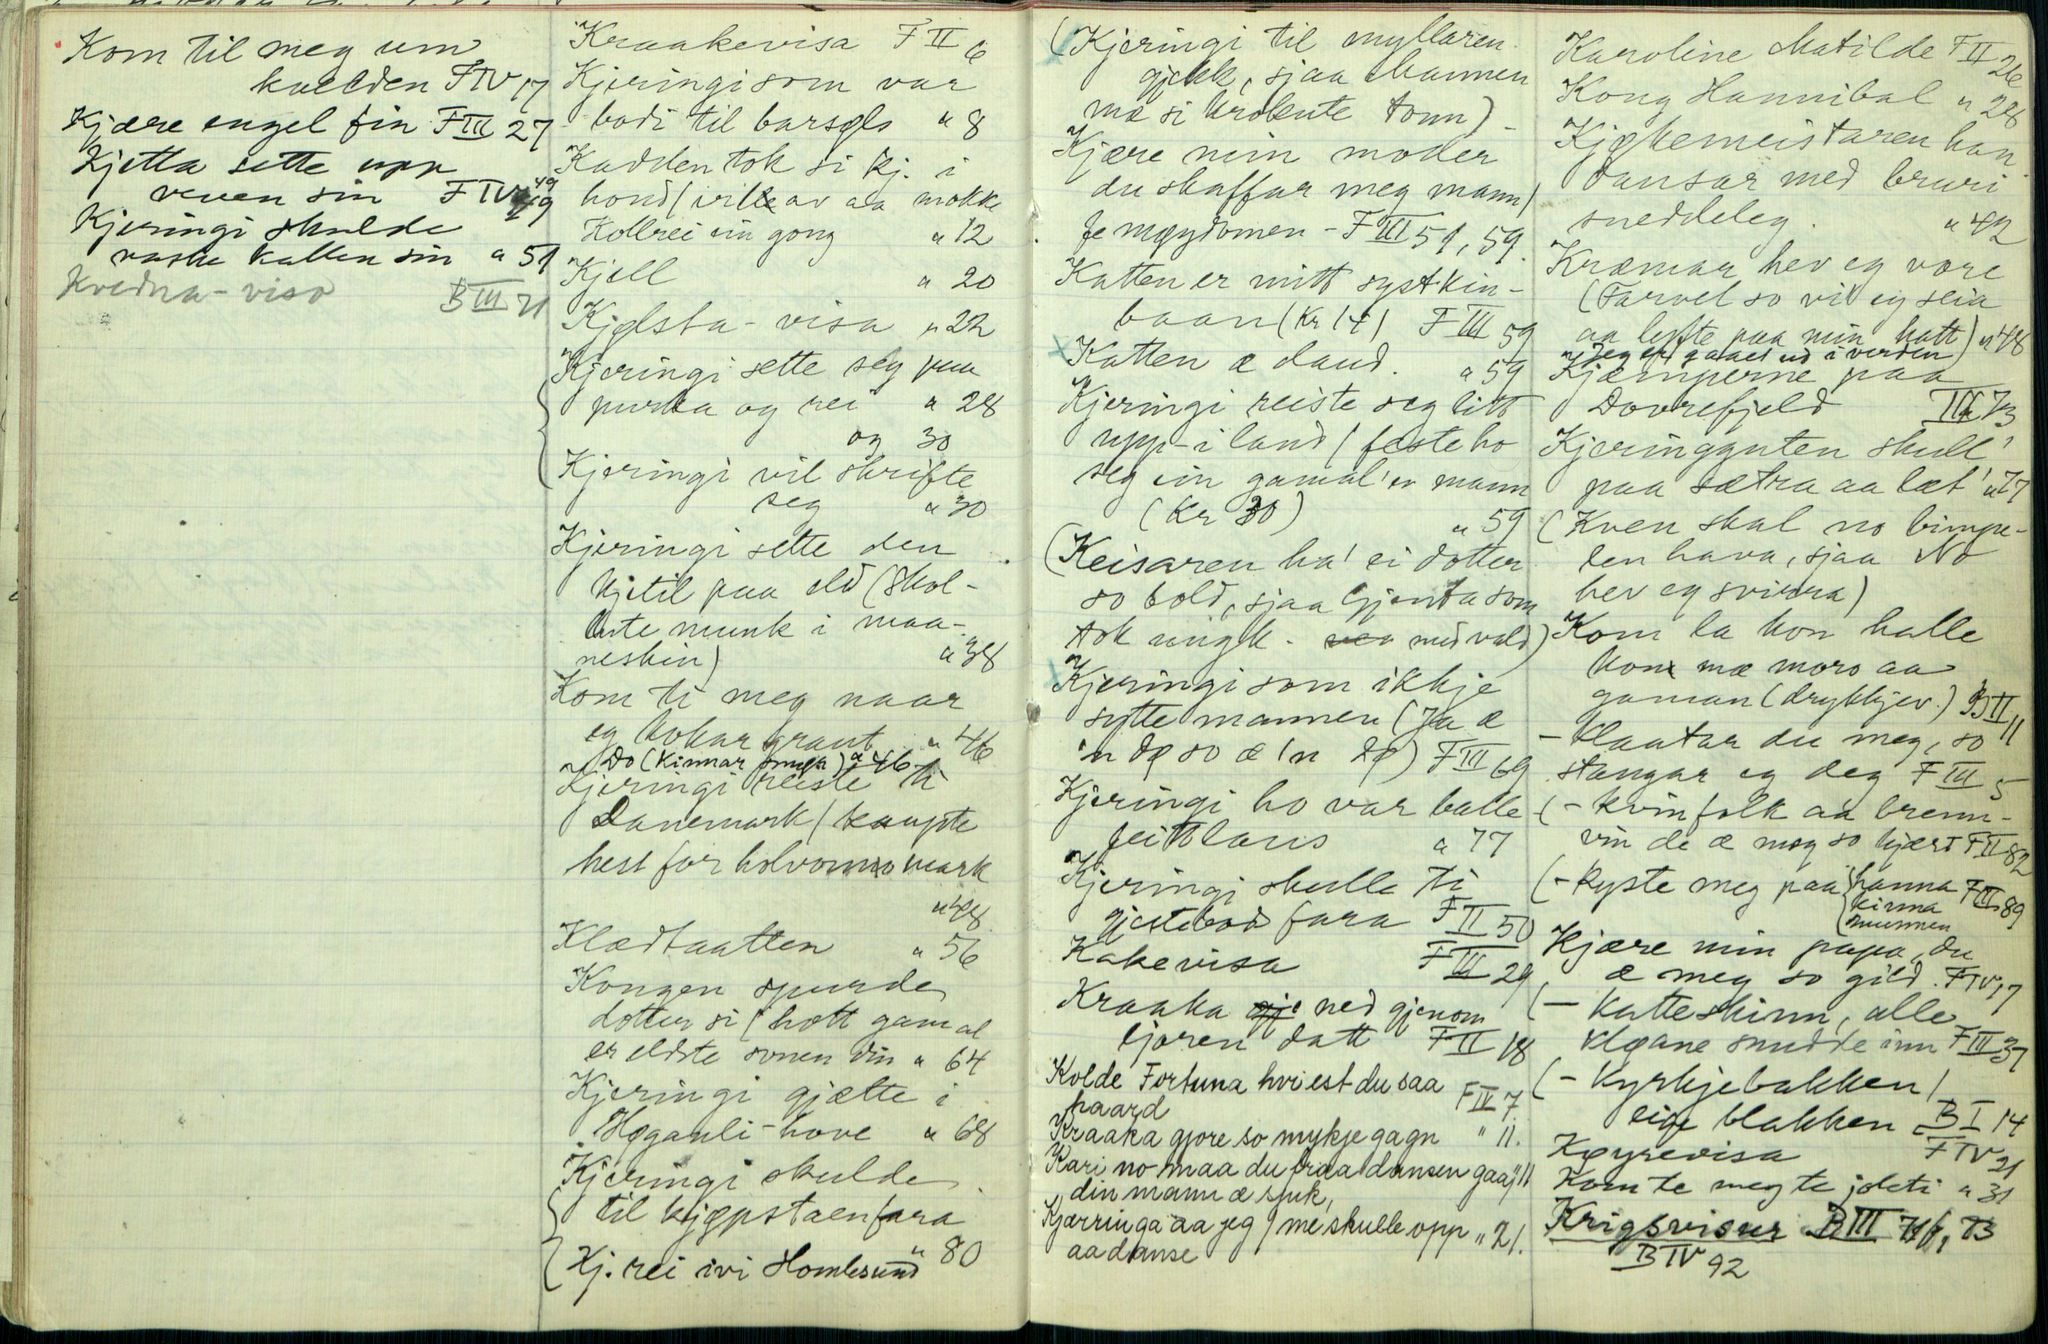 Kom til meg um
kvelden F IV 17
Kjære engel fin F III 27
Kjetta sette upp
veven sin F IV 49
Kjeringi skulde
vaske katten sin " 51
Kvedna-viso B III 71
Kraakevisa F II 6
Kjeringi som var
bodi til barsøls " 8
Kadden tok si kj. i
hond / ville av aa mokke
Hollrei ein gong " 12
Kjell " 20
Kjølsta-visa " 22
Kjeringi sette seg paa
purka og rei " 28
og 30
Kjeringi vil skrifte
seg " 30
Kjeringi sette den
kjetil paa eld (Skol-
te munk i maa-
neskin) " 38
Kom ti meg naar
eg kokar graut " 46
Do (Kinnar smør) " 46
Kjeringi reiste ti
Danemark / kaupte
hest for holvonno mark
" 48
Klædtaatten " 56
Kongen spurde
dotter si / hott gamal
er eldste sonen din " 64
Kjeringi gjætte i
Høganli-hove " 68
Kjeringi skulde
til kjøpstaen fara
Kj. rei ivi Homlesund " 80
(Kjeringi til myllaren
gjekk, sjaa Mannen
mæ si krokute tonn)
Kjære min moder
du skaffar meg mann /
fe møydomen - F III 51, 59.
Katten er mitt systkin-
baan (Kr 14) F III 59
Katten æ daud. " 59
Kjeringi reiste seg litt
upp-i land / feste ho
seg ein gamal'er mann
(Kr 30) " 59
(Keisaren ha' ei dotter
so bold, sjaa Gjenta som
tok ungk. med vald)
Kjeringi som ikkje
sytte mannen (Ja æ
'n dø so æ 'n dø) F III 69
Kjeringi ho var balle
feittlaus " 77
Kjeringi skulle ti
gjestebod fara F II 50
Kakevisa F III 29
Kraaka ned gjenom
ljoren datt F II 18
Kolde Fortuna hvi est du saa
haard F IV 7.
Kraaka gjore so mykje gagn " 11.
Kari no maa du fraa dansen gaa " 11
din mann æ sjuk,
Kjærringa aa jeg / me skulle opp " 21.
aa danse
Karoline Matilde F II 26
Kong Hannibal " 28
Kjøkemeistaren han
dansar med bruri
sneddeleg. " 42
Kræmar hev eg vore
(Farvel so vil eg seia
aa lyfte paa min hatt) " 48
Jeg er galaet ud i verden
Kjæmperne paa
Dovrefjeld III 73
Kjeringguten skull'
paa sætra aa læt' " 77
(Kven skal no bimpe-
len hava, sjaa No
hev eg svirra)
Kom la kon halle
kom mæ moro aa
gaman (drykkjev.) B II 11
- Klaatar du meg, so
stangar eg deg F III 5
(- Kvinfolk aa brenn-
vin de æ meg so kjært F II 82
(- Kyste meg paa hanna F III 89
kinna
munnen
Kjære min papa, du
æ meg so gild. F IV 17
(- Katteskinn, alle
kløane snudde inn F III 37
(- Kyrkjebakken /
eige blakken B I 14
Køyrevisa F IV 21
Kom te meg te joleti " 31
Krigsvisur B III 71, 73
B IV 92